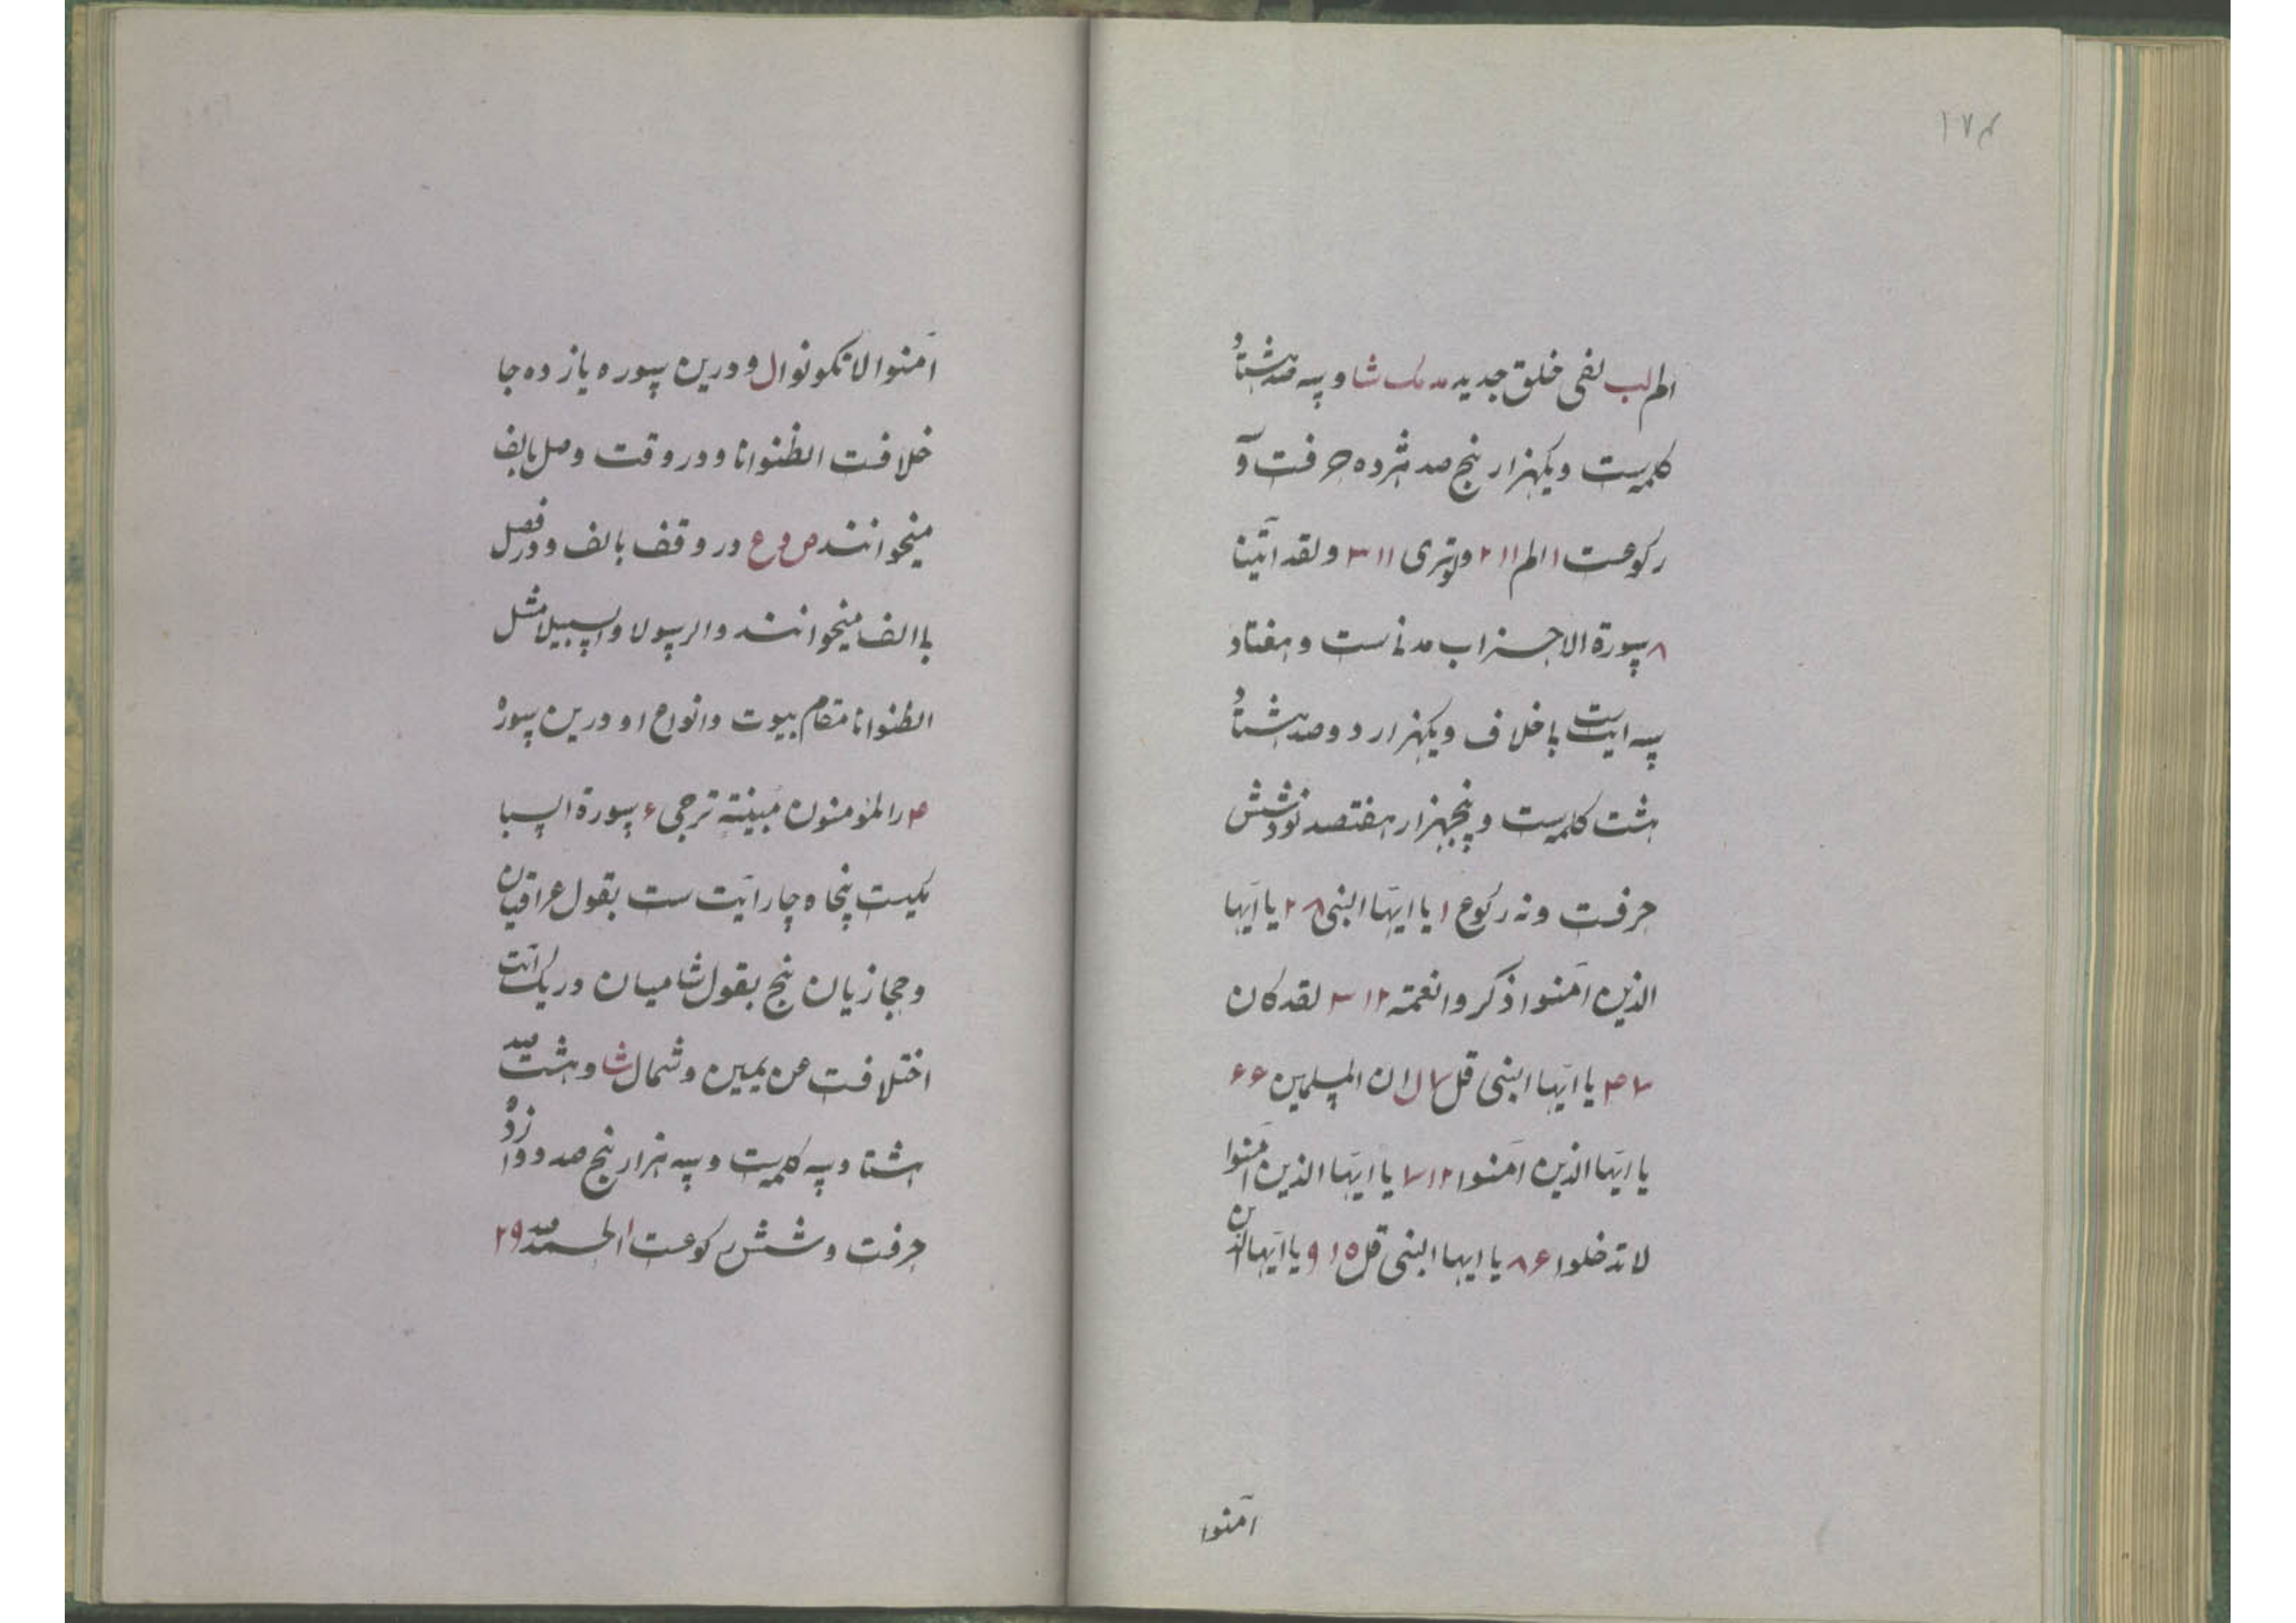 ۱۷۴
الم لب لفی خلق جدید مد مک شا و سه صد هشتاد
کلمه‌ست و یکهزار پنج صد هژده حرفست و
رکوعست ۱ الم ۱۱ ۲ ولو تری ۱۱ ۳ ولقد اتینا
۸ سورة الاحزاب مدنی‌ست و هفتاد
سه ایت‌ست باخلاف و یکهزار دو صد هشتاد
هشت کلمه‌ست و پنجهزار هفتصد نود شش
حرفست و نه رکوع ۱ یا ایّها النبی ۸ ۲ یا ایّها
الذین آمنوا ذکروا نعمة ۱۲ ۳ لقد کان
۷ ۴ یا ایّها النبی قل ۷ ل ان المسلمین ۶ ۶
یا ایّها الذین آمنوا ۱۲ ۷ یا ایّها الذین آمنوا
لا تدخلوا ۶ ۸ یا ایها النبی قل ۱۵ ۹ یا ایّها الذین
آمنوا
آمنوا لا تکونوا ل و درین سوره یازده جا
خلافست الظنوانا و در وقت وصل بالف
میخوانند ص و ع در وقف بالف و در فصل
باالف میخوانند و الرسولا و السبیلا مثل
الظنوانا مقام بیوت و انواع او درین سوره
۴ را المؤمنون مبینة ترجی ۶ سورة السبا
مکیست پنجاه چار ایت ست بقول عراقیان
و حجازیان پنج بقول شامیان در یک آیت
اختلافست عن یمین و شمال شا و هشت صد
هشتاد سه کلمه‌ست و سه هزار پنج صد دوازده
حرفست و شش رکوعست ۱ الحمد ۹ ۲